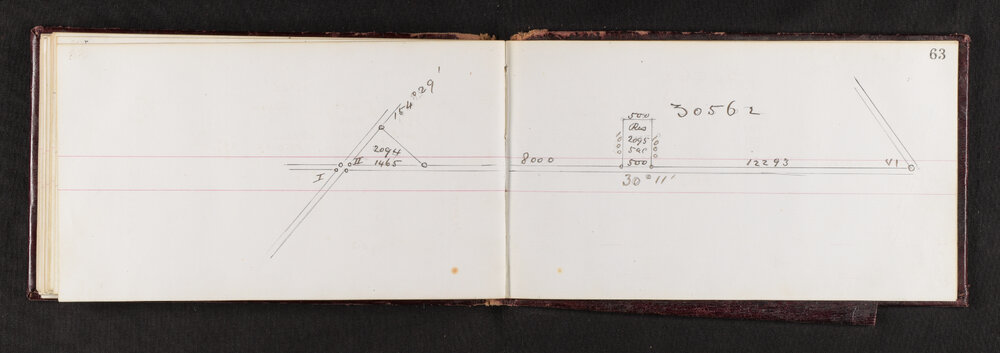 63
154°29'
2094
1465
II
I
8000
500
Res
2095
5ac
500
1000
1000
30°11'
30562
12293
VI